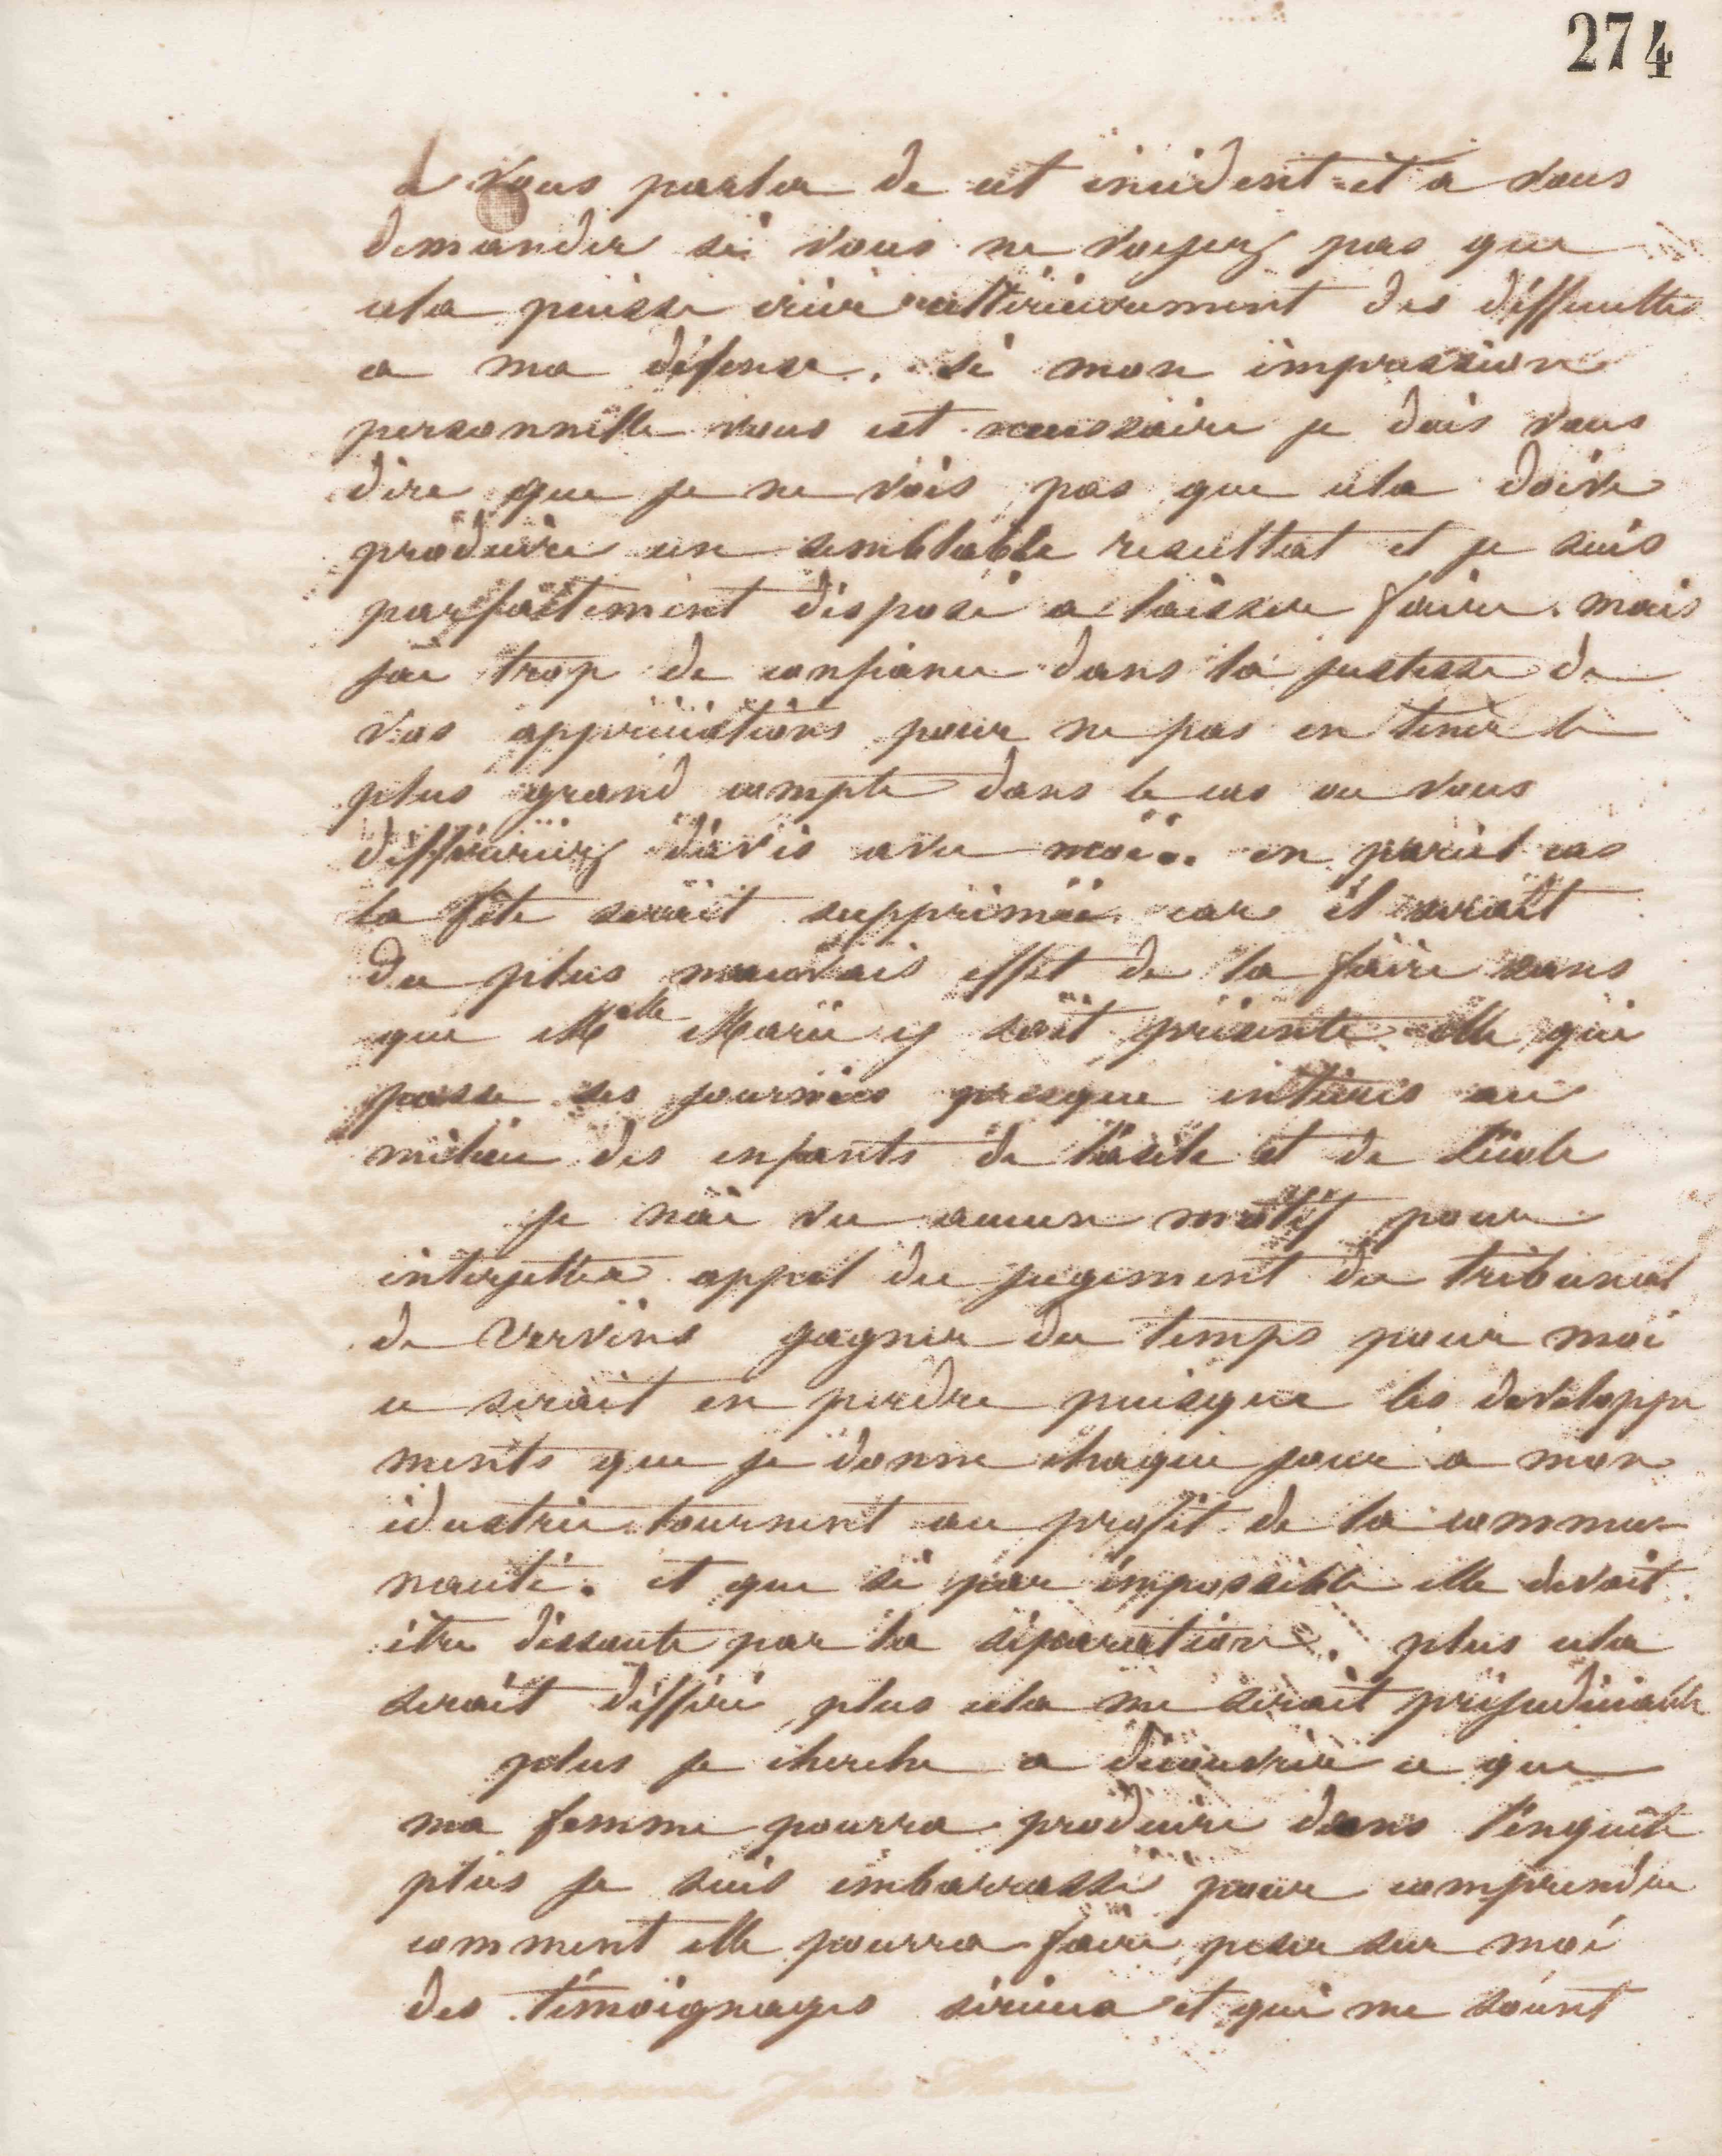 274
a vous parler de cet incident et a vous
demander si vous ne voyez pas que
cela puisse créer ultérieurement des difficultés
a ma défense. si mon impression
personnelle vous est necessaire je dois vous
dire que je ne vois pas que cela doive
produire un semblable resultat et je suis
parfaitement disposé a laisser faire. mais
jai trop de confiance dans la justesse de
vos appréciations pour ne pas en tenir le
plus grand compte dans le cas ou vous
différeriez d'avis avec moi. en pareil cas
la fête serait supprimée car il serait
du plus mauvais effet de la faire sans
que Melle Marie y soit présente elle qui
passe ses journées presque entières au
milieu des enfants de l'asile et de l'école
je nai vu aucun motif pour
interjetter appel du jugement du tribunal
de Vervins gagner du temps pour moi
ce serait en perdre puisque les developpe
ments que je donne chaque jour a mon
idustrie tournent au profit de la commu-
nauté. et que si par impossible elle devait
être dissoute par la séparation. plus cela
serait différé plus cela me serait préjudiciable
plus je cherche a découvrir ce que
ma femme pourra produire dans l'enquête
plus je suis embarrassé pour comprendre
comment elle pourra faire peser sur moi
des témoignages sérieux et qui me soient